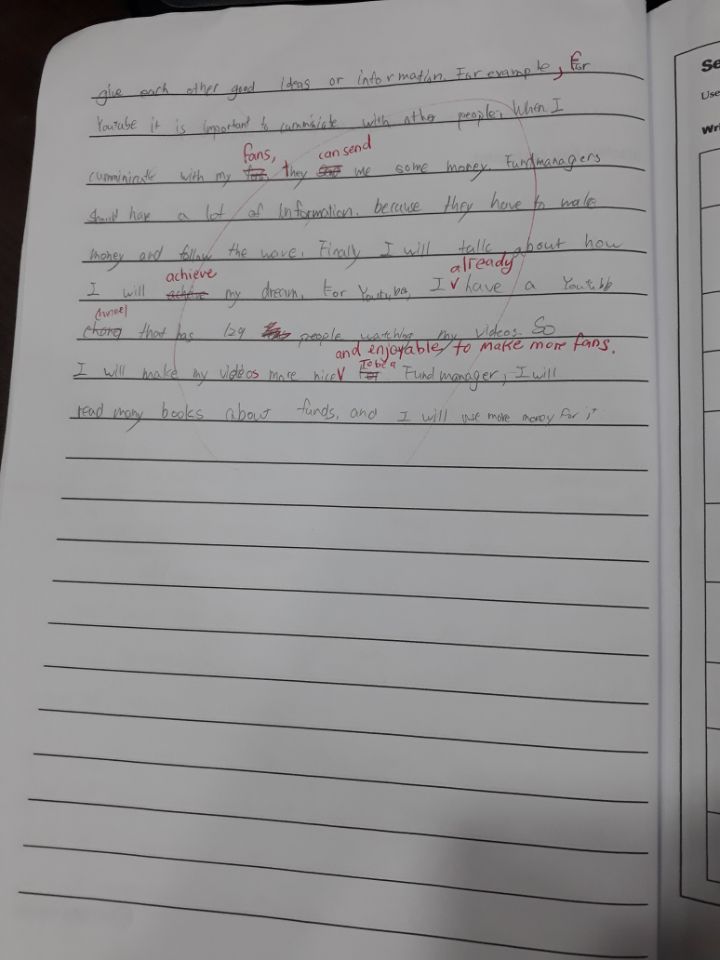 give each other good ideas or information. For example, For
Youtube it is important to cumminicate with other people. When I
fans, can send
cumminicate with my they me some money. Fundmanagers
should have a lot of information. because they have to make
money and follow the wave. Finally I will talk about how
achieve already
I will achieve my dream. For Youtube, I have a Youtube
channel
that has 129 people watching my videos. So
and enjoyable, to make more fans.
To be a
I will make my videos more nice For Fund manager, I will
read many books about funds, and I will use more money for it
Se
Use
Wri